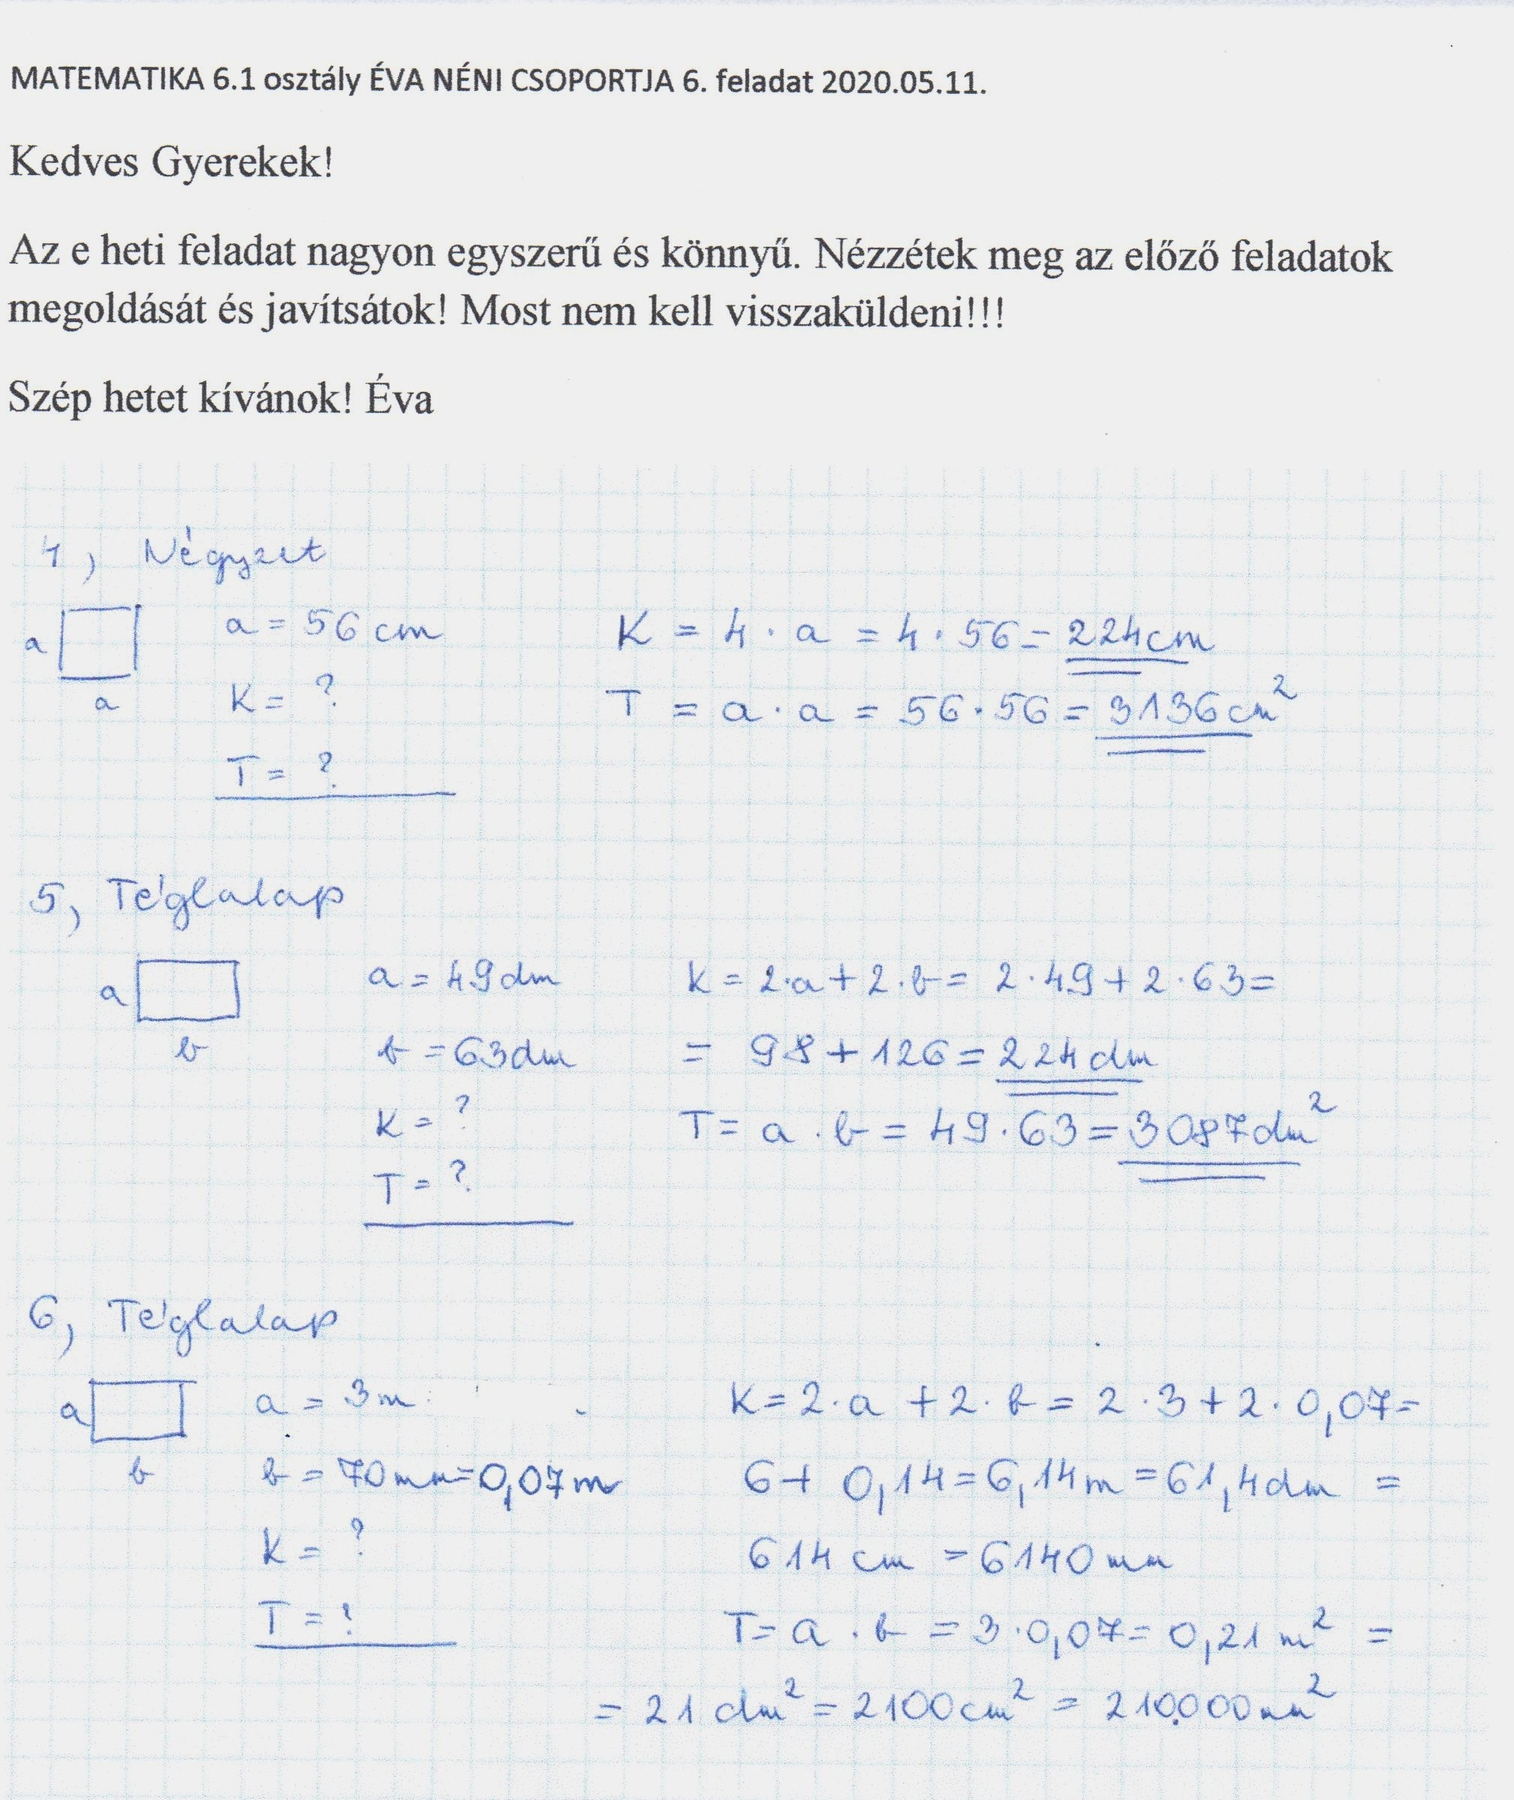 MATEMATIKA 6.1 osztály ÉVA NÉNI CSOPORTJA 6. feladat 2020.05.11.
Kedves Gyerekek!
Az e heti feladat nagyon egyszerű és könnyű. Nézzétek meg az előző feladatok
megoldását és javítsátok! Most nem kell visszaküldeni!!!
Szép hetet kívánok! Éva
4, Négyzet
a
a
a = 56 cm
K = ?
T = ?
K = 4 · a = 4 · 56 = 224 cm
T = a · a = 56 · 56 = 3136 cm²
5, Téglalap
a
b
a = 49 dm
b = 63 dm
K = ?
T = ?
K = 2·a + 2·b = 2·49 + 2·63 =
= 98 + 126 = 224 dm
T = a · b = 49 · 63 = 3087 dm²
6, Téglalap
a
b
a = 3 m
b = 70 mm = 0,07 m
K = ?
T = ?
K = 2·a + 2·b = 2·3 + 2·0,07 =
6 + 0,14 = 6,14 m = 61,4 dm =
614 cm = 6140 mm
T = a · b = 3 · 0,07 = 0,21 m² =
= 21 dm² = 2100 cm² = 210.000 mm²